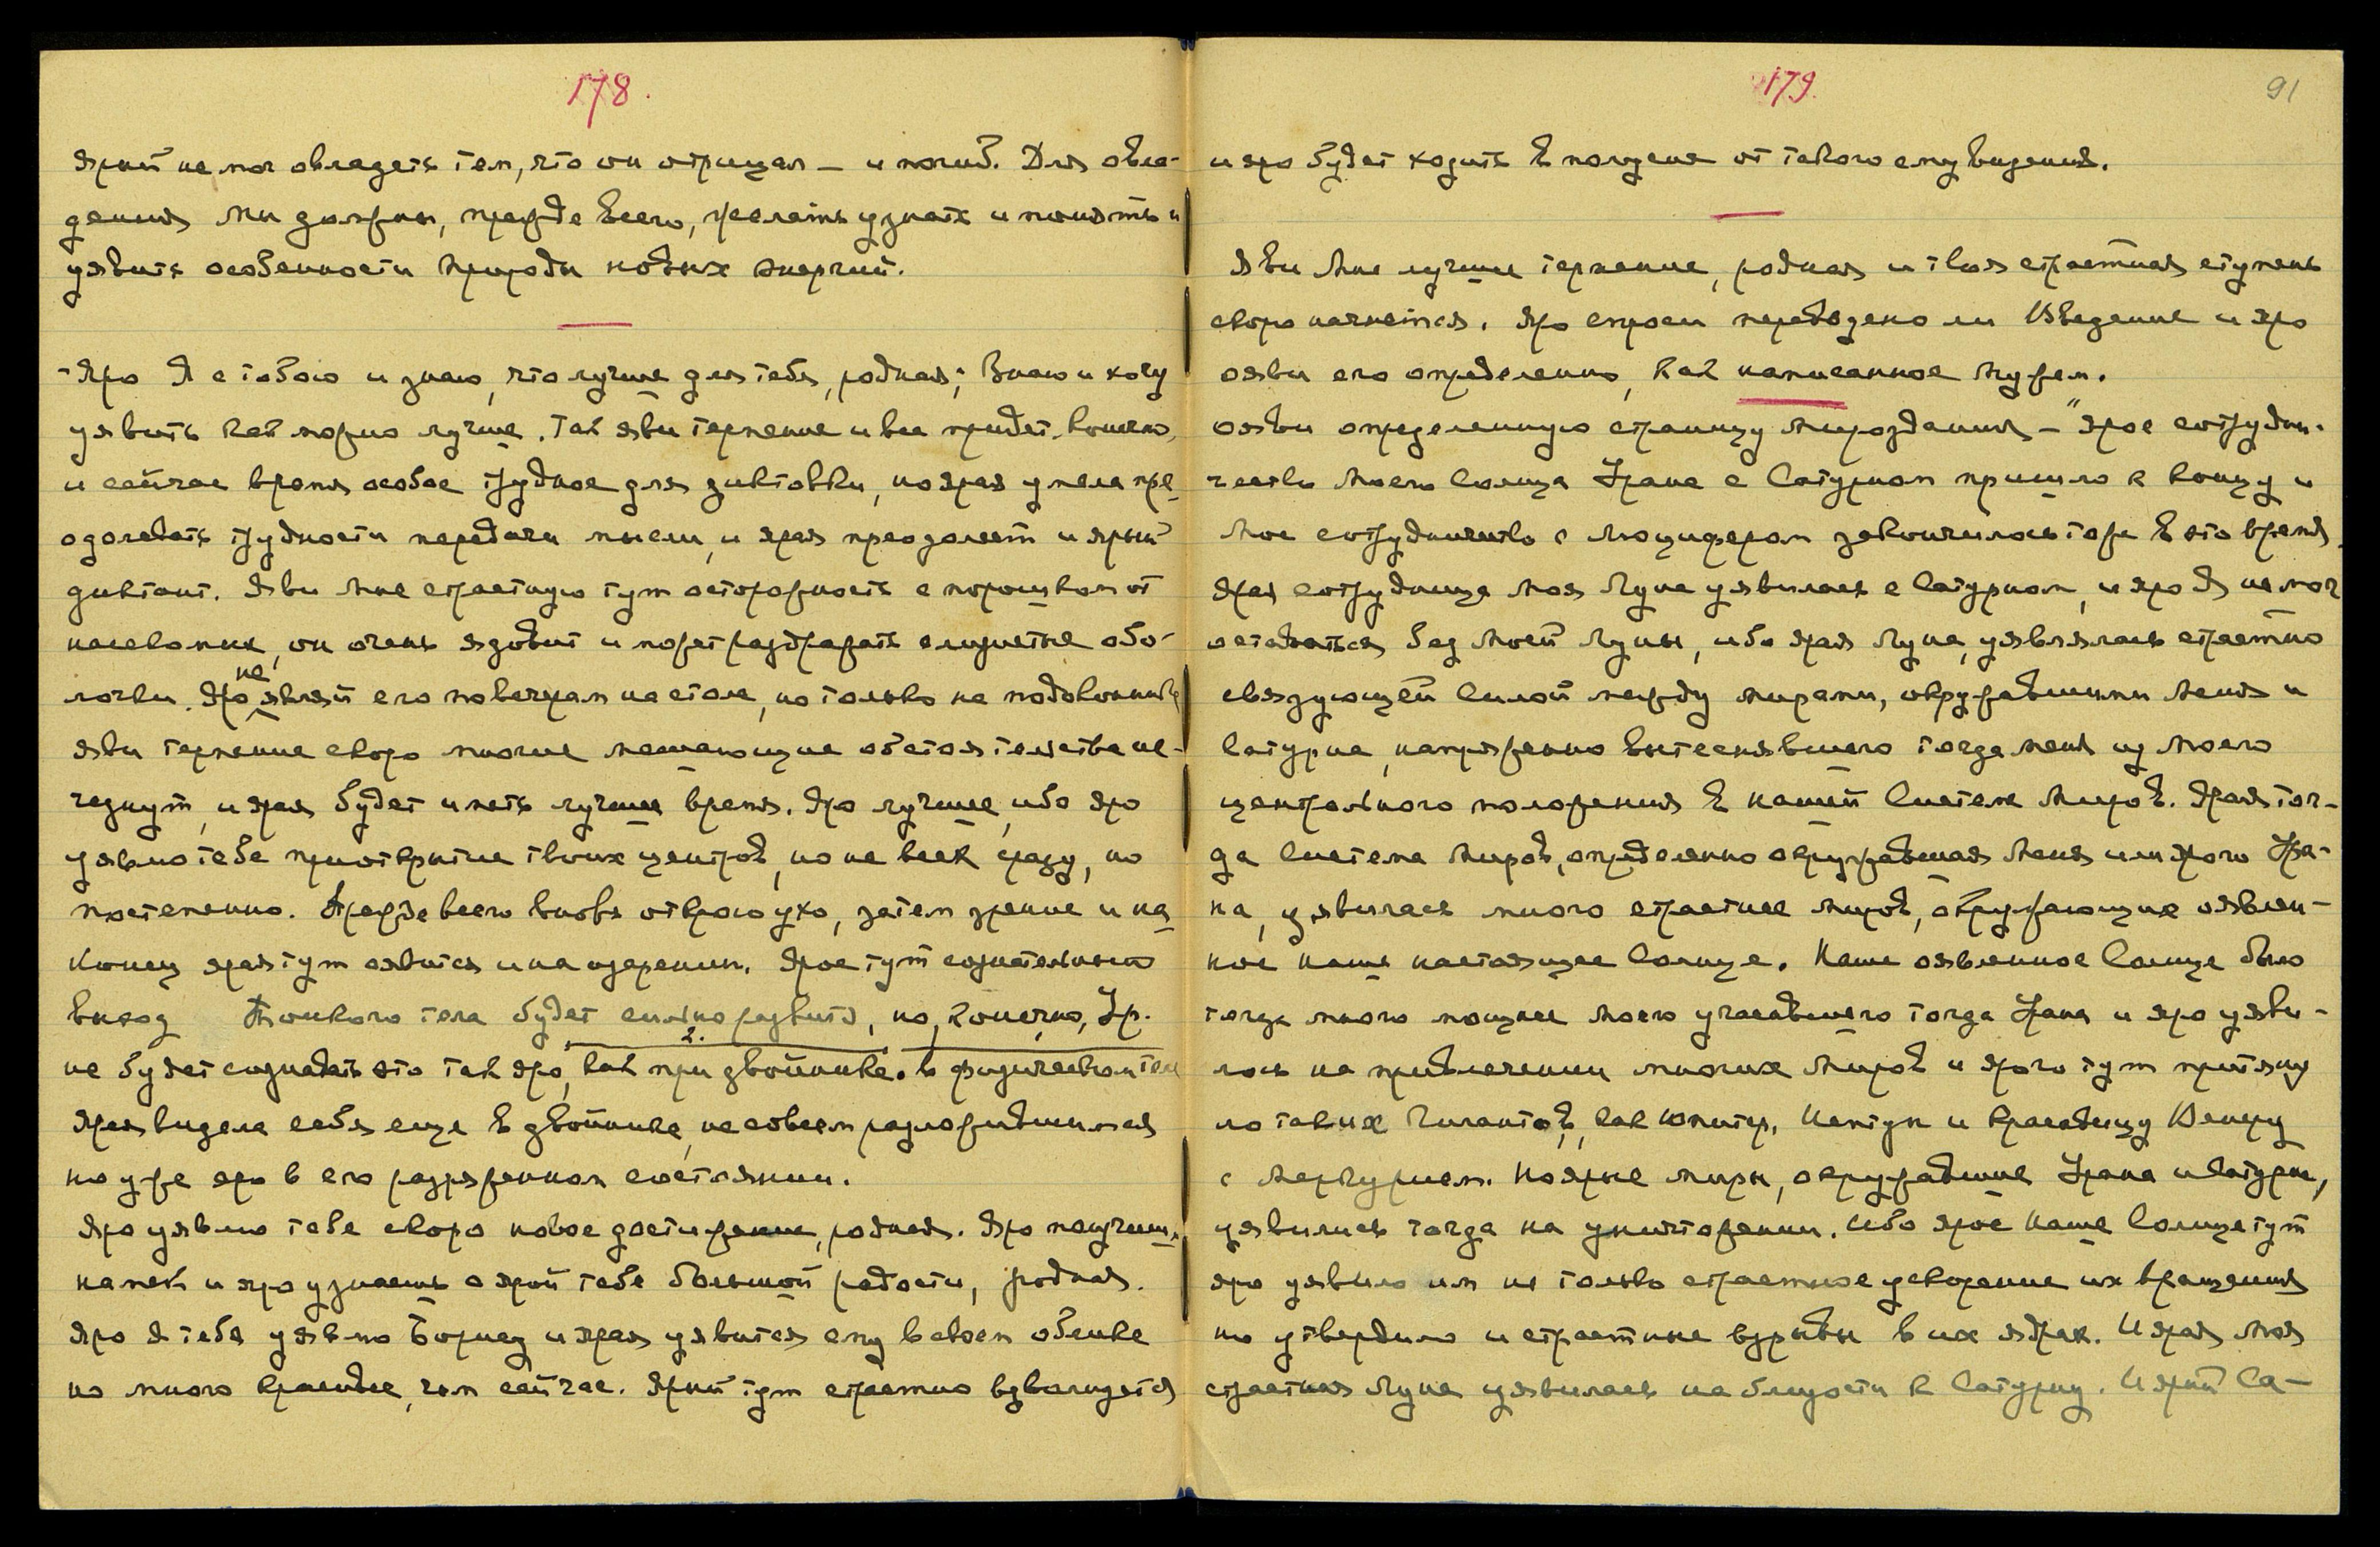 178.
Ярый не мог овладеть тем, что он отрицал — и погиб. Для овла-
дения мы должны, прежде всего, желать узнать и понять и
уявить особенности природы новых энергий.
-Яро Я с тобою и знаю, что лучше для тебя, родная; Знаю и хочу
уявить как можно лучше. Так яви терпение и все придет. Конечно,
и сейчас время особое трудное для диктовки, но ярая умела пре-
одолевать трудности передачи мысли, и ярая преодолеет и ярый
диктант. Яви Мне страстную тут осторожность с порошком от
насекомых, он очень ядовит и может раздражать слизистые обо-
лочки. Яро не являй его по вечерам на столе, но только на подоконнике
яви терпение скоро многие мешающие обстоятельства ис-
чезнут, и ярая будет иметь лучшее время. Яро лучшее, ибо яро
уявлю тебе приоткрытие твоих центров, но не всех сразу, но
постепенно. Прежде всего вновь открою ухо, затем зрение и на
конец ярая тут явится и на озарении. Ярое тут сознательный
выход Тонкого тела будет сильно развито, но, конечно, Ур.
не будет сознавать это так яро, как при двойнике. в физическом теле
Ярая видела себя еще в двойнике, не совсем разложившимся
но уже яро в его разряженном состоянии.
Яро уявлю тебе скоро новое достижение, родная. Яро получишь
намек и яро узнаешь о ярой тебе большой радости, родная.
Яро Я тебя уявлю Борису и ярая уявится ему в своем облике
но много красивее, чем сейчас. Ярый тут страстно взволнуется
179.
91
и яро будет ходить в полусне от такого ему видения.
Яви Мне лучшее терпение, родная и твоя страстная ступень
скоро начнется. Яро спроси переведено ли Введение и яро
ояви его определенно, как написанное мужем.
Ояви определенную страницу Мироздания — "Ярое сотрудни-
чество Моего Солнца Урана с Сатурном пришло к концу и
Мое сотрудничество с Люцифером закончилось тоже в это время.
Ярая сотрудница Моя Луна уявилась с Сатурном, и яро Я не мог
оставаться без Моей Луны, ибо ярая Луна, уявлялась страстно
связующей Силой между мирами, окружавшими Меня и
Сатурна, напряженно вытеснявшего тогда меня из Моего
центрального положения в нашей Системе Миров. Ярая тог-
да Система Миров, определенно окружавшая Меня или ярого Ура-
на, уявилась много страстнее миров, окружающих оявлен-
ное Наше настоящее Солнце. Наше оявленное Солнце было
тогда много мощнее Моего угасавшего тогда Урана и яро уяви-
лось на привлечении многих Миров и ярого тут притяну
ло таких Гигантов, как Юпитер, Нептун и красавицу Венеру
с Меркурием. Но ярые миры, окружавшие Урана и Сатурна,
уявились тогда на уничтожении. Ибо ярое Наше Солнце тут
яро уявило им не только страстное ускорение их вращения
но утвердило и страстные взрывы в их ядрах. И ярая Моя
страстная Луна уявилась на близости к Сатурну. И ярый Са-